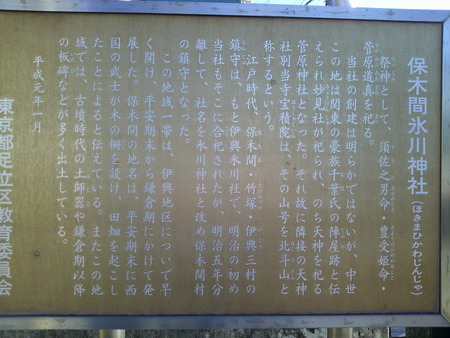 保木間氷川神社（ほきまひかわじんじゃ）
祭神として、須佐之男命・豊受姫命・
菅原道真を祀る。
当社の創建は明らかではないが、中世
この地は関東の豪族千葉氏の陣屋跡と伝
えられ妙見社が祀られ、のち天神を祀る
菅原神社となった。それ故に隣接の天神
社別当寺宝積院は、その山号を北斗山と
称するという。
江戸時代、保木間・竹塚・伊興三村の
鎮守は、もと伊興氷川社で、明治の初め
当社もそこに合祀されたが、明治五年分
離して、社名を氷川神社と改め保木間村
の鎮守となった。
この地域一帯は、伊興地区について早
く開け、平安期末から鎌倉期にかけて発
展した。保木間の地名は、平安期末に西
国の武士が木の柵を設け、田畑を起こし
たことによると伝えている。またこの地
域では、古墳時代の土師器や鎌倉期以降
の板碑などが多く出土している。
平成元年一月
東京都足立区教育委員会